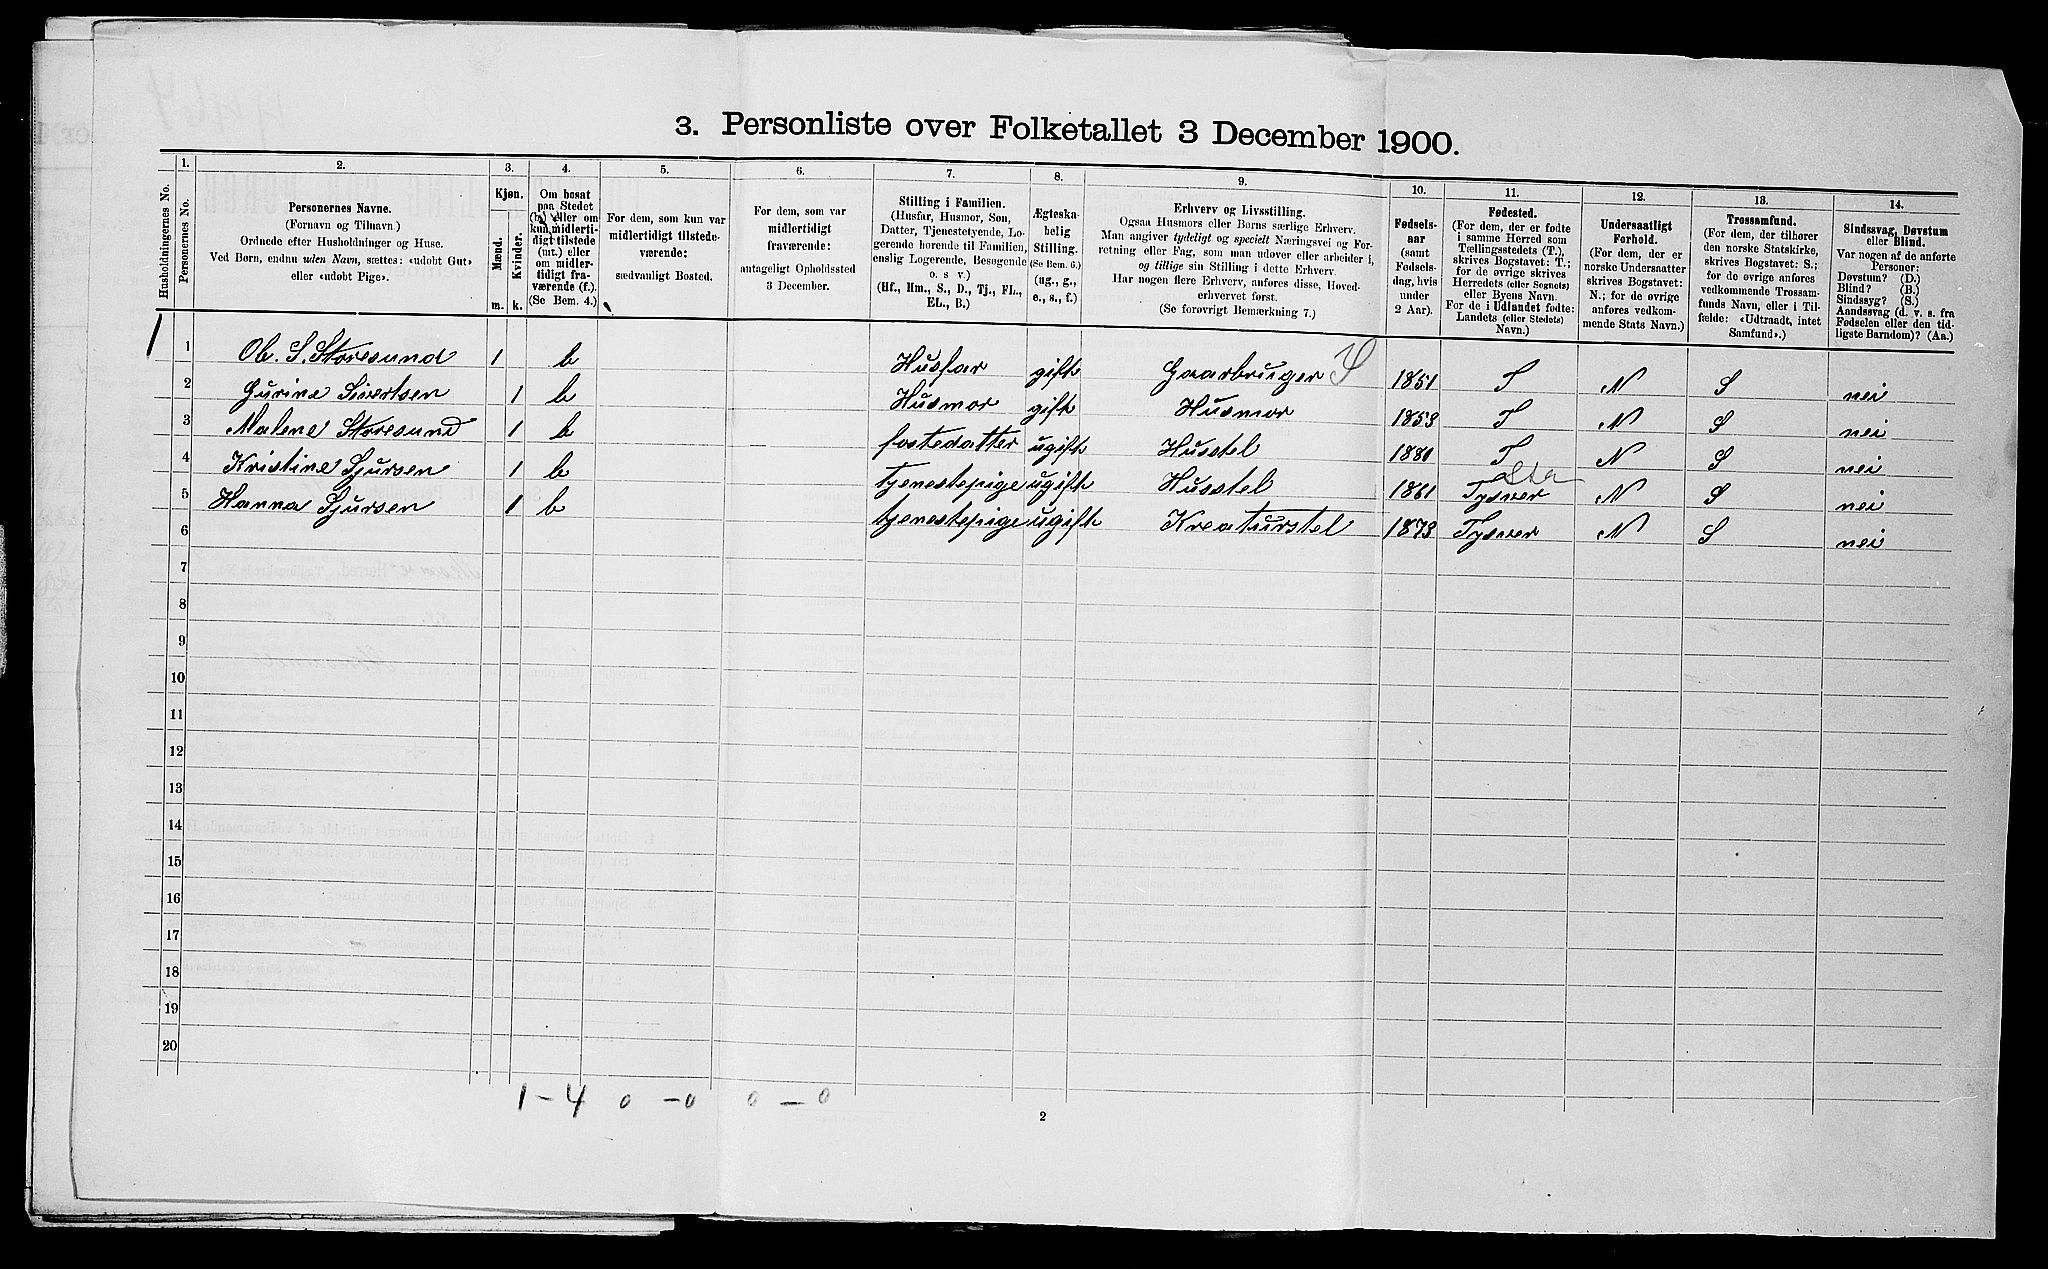 3. Personliste over Folketallet 3 December 1900.
Husholdningernes No.
1.
Personernes No.
2.
Personernes Navne.
(Fornavn og Tilnavn)
Ordnede efter Husholdninger og Huse.
Ved Børn, endnu uden Navn, sættes: «udøbt Gut»
eller «udøbt Pige».
3.
Kjøn.
Mænd.
Kvinder.
m.
k.
4.
Om bosat
paa Stedet
(b.) eller om
kun midlerti-
digt tilstede
(mt.) eller
om midler-
tidigt fra-
værende (f.).
(Se Bem. 4.)
5.
For dem, som kun var
midlertidigt tilstede-
værende:
sædvanligt Bosted.
6.
For dem, som var
midlertidigt
fraværende:
antageligt Opholdssted
3 December.
7.
Stilling i Familien.
(Husfar, Husmor, Søn,
Datter, Tjenestetyende, Lo-
gerende hørende til Familien,
enslig Logerende, Besøgende
o. s v.)
(Hf., Hm., S., D., Tj., FL.,
EL., B.)
8.
Ægteska-
belig
Stilling.
(Se Bem. 6.)
(ug., g.,
e., s., f.)
9.
Erhverv og Livsstilling.
Ogsaa Husmors eller Børns særlige Erhverv.
Man angiver tydeligt og specielt Næringsvei og For-
retning eller Fag, som man udøver eller arbeider i,
og tillige sin Stilling i dette Erhverv.
Har nogen flere Erhverv, anføres disse, Hoved-
erhvervet først.
(Se forøvrigt Bemærkning 7.)
10.
Fødsels-
aar
(samt
Fødsels-
dag, hvis
under
2 Aar).
11.
Fødested.
(For dem, der er fødte
i samme Herred som
Tællingsstedets (T.),
skrives Bogstavet: T.;
for de øvrige skrives
Herredets (eller Sognets)
eller Byens Navn.
For de i Udlandet fødte:
Landets (eller Stedets)
Navn.)
12.
Undersaatligt
Forhold.
(For dem, der er
norske Undersaatter
skrives Bogstavet:
N.; for de øvrige
anføres vedkom-
mende Stats Navn.)
13.
Trossamfund.
(For dem, der tilhører
den norske Statskirke,
skrives Bogstavet: S.;
for de øvrige anføres
vedkommende Trossam-
funds Navn, eller i Til-
fælde: «Udtraadt, intet
Samfund».)
14.
Sindssvag, Døvstum
eller Blind.
Var nogen af de anførte
Personer:
Døvstum? (D.)
Blind? (B.)
Sindssyg? (S.)
Aandssvag (d. v. s. fra
Fødselen eller den tid-
ligste Barndom)? (Aa.)
1 1 Ob. S. Storesund 1 b Husfar gift Gaarbruiger S 1851 T N S nei
2 Gurine Sivertsen 1 b Husmor gift Husmor 1853 T N S nei
3 Malene Storesund 1 b fostedatter ugift Husstel 1881 T N S nei
4 Kristine Sjursen 1 b tjenestepige ugift Husstel 1861 Tysver N S nei
5 Hanna Sjursen 1 b tjenestepige ugift Kreaturstel 1873 Tysver N S nei
6
7
8
9
10
11
12
13
14
15
16
17
18
19
20
1 - 4 0 - 0 0 - 0
2